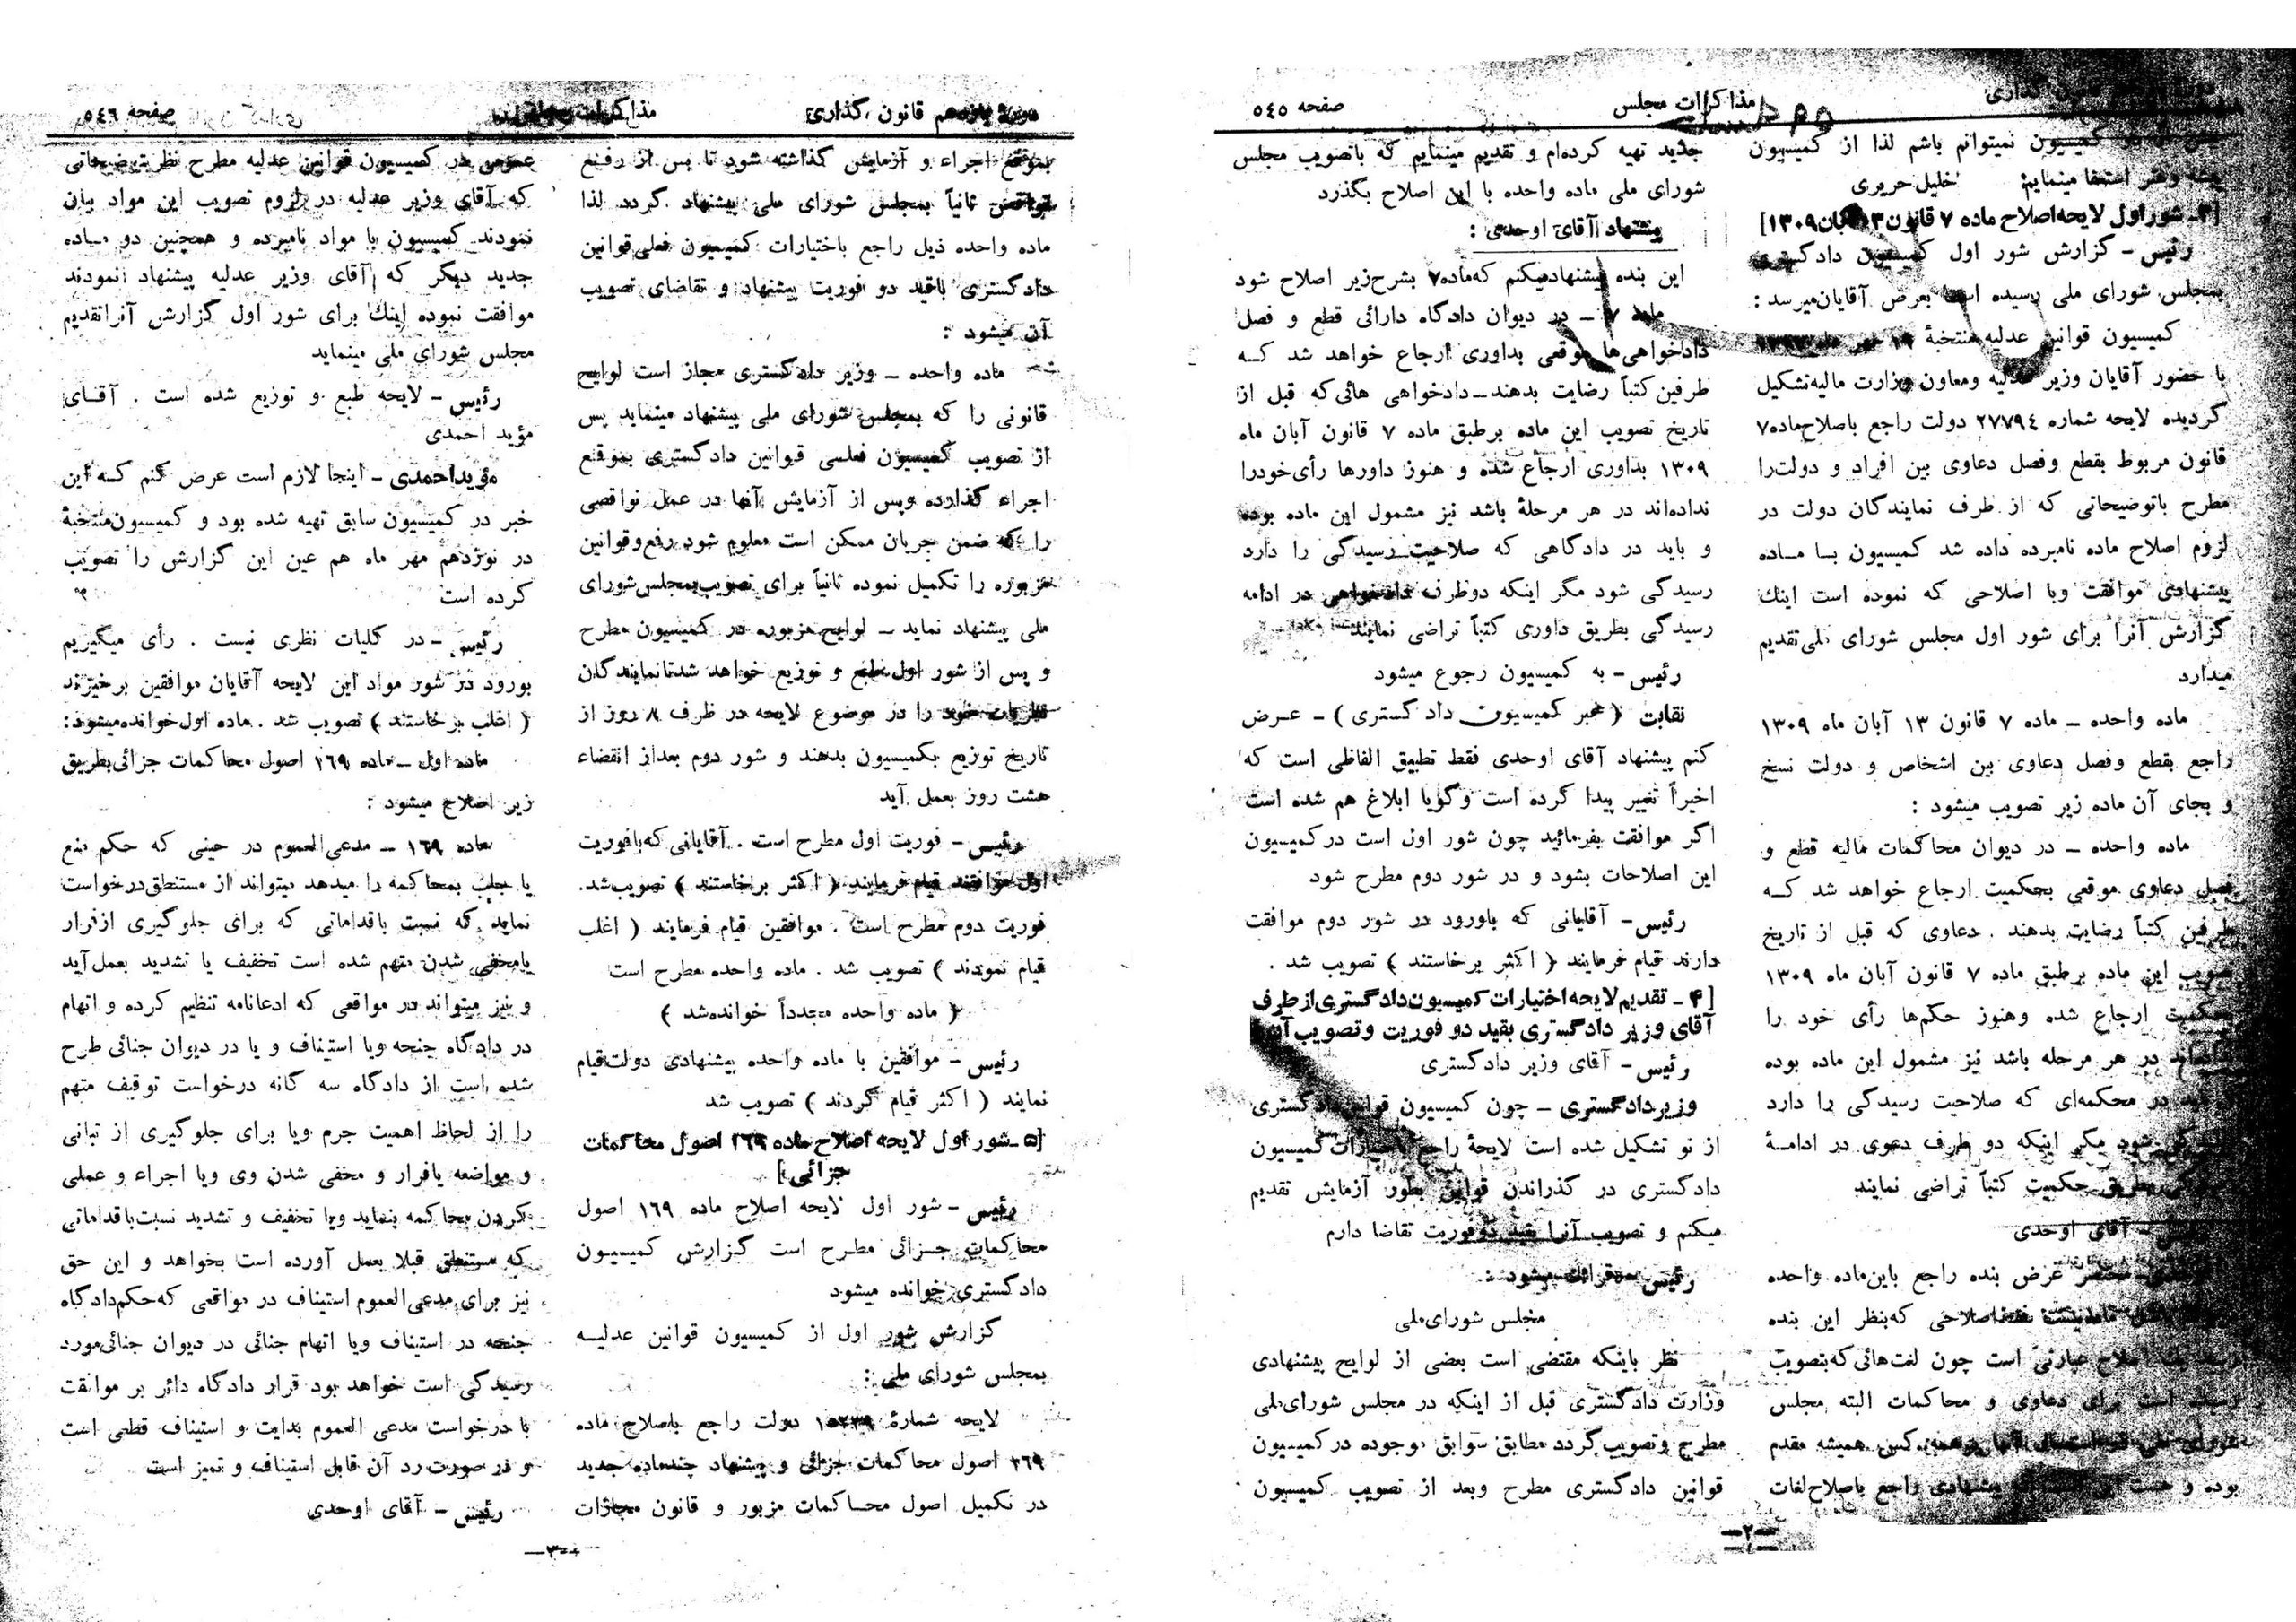 مذاکرات مجلس
صفحه ۵٤۵
کمیسیون نمیتوانم باشم لذا از کمیسیون
پیشه و هنر استعفا مینمایم خلیل حریری
[۳ـ شور اول لایحه اصلاح ماده ۷ قانون ۱۳ آبان ۱۳۰۹]
رئیس - گزارش شور اول کمیسیون دادگستری
بمجلس شورای ملی رسیده است بعرض آقایان میرسد :
کمیسیون قوانین عدلیه منتخبهٔ ۱۹ مهر ماه
با حضور آقایان وزیر عدلیه ومعاون وزارت مالیه تشکیل
گردیده لایحه شماره ۲۷۷۹٤ دولت راجع باصلاح ماده ۷
قانون مربوط بقطع وفصل دعاوی بین افراد و دولت را
مطرح باتوضیحاتی که از طرف نمایندگان دولت در
لزوم اصلاح ماده نامبرده داده شد کمیسیون بـا مـاده
پیشنهادی موافقت وبا اصلاحی که نموده است اینك
گزارش آنرا برای شور اول مجلس شورای ملی تقدیم
میدارد
ماده واحده ـ ماده ۷ قانون ۱۳ آبان ماه ۱۳۰۹
راجع بقطع وفصل دعاوی بین اشخاص و دولت نسخ
و بجای آن ماده زیر تصویب میشود :
ماده واحده ـ در دیوان محاکمات مالیه قطع و
فصل دعاوی موقعی بحکمیت ارجاع خواهد شد کـه
طرفین کتباً رضایت بدهند . دعاوی که قبل از تاریخ
تصویب این ماده برطبق ماده ۷ قانون آبان ماه ۱۳۰۹
بحکمیت ارجاع شده وهنوز حکم‌ها رأی خود را
نداده‌اند در هر مرحله باشد نیز مشمول این ماده بوده
در محکمه‌ای که صلاحیت رسیدگی را دارد
شود مگر اینکه دو طرف دعوی در ادامـهٔ
بطریق حکمیت کتباً تراضی نمایند
رئیس - آقای اوحدی
عرض بنده راجع باین ماده واحده
اصلاحی که بنظر این بنده
اصلاح عبارتی است چون لغت‌هائی که بتصویب
است برای دعاوی و محاکمات البته مجلس
شورای ملی کس همیشه مقدم
بوده و پیشنهادی راجع باصلاح لغات
جدید تهیه کرده‌ام و تقدیم مینمایم که باتصویب مجلس
شورای ملی ماده واحده با این اصلاح بگذرد
پیشنهاد آقای اوحدی :
این بنده پیشنهاد میکنم که ماده ۷ بشرح زیر اصلاح شود
ماده ۷ ـ در دیوان دادگاه دارائی قطع و فصل
دادخواهی‌ها موقعی بداوری ارجاع خواهد شد کـه
طرفین کتباً رضایت بدهند ـ دادخواهی هائی که قبل از
تاریخ تصویب این ماده برطبق ماده ۷ قانون آبان ماه
۱۳۰۹ بداوری ارجاع شده و هنوز داورها رأی خود را
نداده‌اند در هر مرحلهٔ باشد نیز مشمول این ماده بوده
و باید در دادگاهی که صلاحیت رسیدگی را دارد
رسیدگی شود مگر اینکه دوطرف دادخواهی در ادامه
رسیدگی بطریق داوری کتباً تراضی نمایند
رئیس - به کمیسیون رجوع میشود
نقابت ( مخبر کمیسیون دادگستری ) - عـرض
کنم پیشنهاد آقای اوحدی فقط تطبیق الفاظی است که
اخیراً تغییر پیدا کرده است وگویا ابلاغ هم شده است
اگر موافقت بفرمائید چون شور اول است درکمیسیون
این اصلاحات بشود و در شور دوم مطرح شود
رئیس - آقایانی که باورود در شور دوم موافقت
دارند قیام فرمایند ( اکثر برخاستند ) تصویب شد .
[ ۴ ـ تقدیم لایحه اختیارات کمیسیون دادگستری از طرف
آقای وزیر دادگستری بقید دو فوریت و تصویب آن ]
رئیس - آقای وزیر دادگستری
وزیر دادگستری - چون کمیسیون قوانین دادگستری
از نو تشکیل شده است لایحهٔ راجع باختیارات کمیسیون
دادگستری در گذراندن قوانین بطور آزمایش تقدیم
میکنم و تصویب آنرا بقید دوفوریت تقاضا دارم
رئیس - قرائت میشود :
مجلس شورای ملی
نظر باینکه مقتضی است بعضی از لوایح پیشنهادی
وزارت دادگستری قبل از اینکه در مجلس شورای ملی
مطرح وتصویب گردد مطابق سوابق موجوده درکمیسیون
قوانین دادگستری مطرح وبعد از تصویب کمیسیون
ـ۲ـ
دوره یازدهم قانون گذاری
مذاکرات مجلس
صفحه ۵٤٦
بموقع اجراء و آزمایش گذاشته شود تا پس از رفـع
نواقص ثانیاً بمجلس شورای ملی پیشنهاد گردد لذا
ماده واحده ذیل راجع باختیارات کمیسیون فعلی قوانین
دادگستری باقید دو فوریت پیشنهاد و تقاضای تصویب
آن میشود :
ماده واحده ـ وزیر دادگستری مجاز است لوایح
قانونی را که بمجلس شورای ملی پیشنهاد مینماید پس
از تصویب کمیسیون فعلـی قـوانین دادگستری بموقع
اجراء گذارده وپس از آزمایش آنها در عمل نواقصی
را که ضمن جریان ممکن است معلوم شود رفع وقوانین
مزبوره را تکمیل نموده ثانیاً برای تصویب بمجلس شورای
ملی پیشنهاد نماید ـ لوایح مزبوره در کمیسیون مطرح
و پس از شور اول طبع و توزیع خواهد شد تا نمایندگان
نظریات خود را در موضوع لایحه در ظرف ۸ روز از
تاریخ توزیع بکمیسیون بدهند و شور دوم بعداز انقضاء
هشت روز بعمل آید
رئیس - فوریت اول مطرح است . آقایانی که بافوریت
اول موافقند قیام فرمایند ( اکثر برخاستند ) تصویب شد.
فوریت دوم مطرح است . موافقین قیام فرمایند ( اغلب
قیام نمودند ) تصویب شد . ماده واحده مطرح است
( ماده واحده مجدداً خوانده شد )
رئیس - موافقین با ماده واحده پیشنهادی دولت قیام
نمایند ( اکثر قیام کردند ) تصویب شد
[۵ ـ شور اول لایحه اصلاح ماده ۱۶۹ اصول محاکمات
جزائی]
رئیس - شور اول لایحه اصلاح ماده ۱۶۹ اصول
محاکمات جـزائی مطـرح است گـزارش کمیسیـون
دادگستری خوانده میشود
گزارش شور اول از کمیسیون قوانین عدلیـه
بمجلس شورای ملی :
لایحه شمارهٔ دولت راجع باصلاح ماده
۱۶۹ اصول محاکمات جزائی و پیشنهاد چندماده جدید
در تکمیل اصول محـاکمات مزبور و قانون مجازات
عمومی در کمیسیون قوانین عدلیه مطرح نظر بتوضیحاتی
که آقای وزیر عدلیه در لزوم تصویب این مواد بیان
نمودند کمیسیون با مواد نامبرده و همچنین دو مـاده
جدید دیگر که آقای وزیر عدلیه پیشنهاد نمودند
موافقت نموده اینك برای شور اول گزارش آنرا تقدیم
مجلس شورای ملی مینماید
رئیس - لایحه طبع و توزیع شده است . آقـای
مؤید احمدی
مؤید احمدی - اینجا لازم است عرض کنم کـه این
خبر در کمیسیون سابق تهیه شده بود و کمیسیون منتخبهٔ
در نوزدهم مهر ماه هم عین این گزارش را تصویب
کرده است
رئیس - در کلیات نظری نیست . رأی میگیریم
بورود در شور مواد این لایحه آقایان موافقین برخیزند
( اغلب برخاستند ) تصویب شد . ماده اول خوانده میشود:
ماده اول ـ ماده ۱۶۹ اصول محاکمات جزائی بطریق
زیر اصلاح میشود :
ماده ۱۶۹ - مدعی‌العموم در حینی که حکم منع
یا جلب بمحاکمه را میدهد میتواند از مستنطق درخواست
نماید که نسبت باقداماتی که برای جلوگیری ازفرار
یامخفی شدن متهم شده است تخفیف یا تشدید بعمل آید
و نیز میتواند در مواقعی که ادعانامه تنظیم کرده و اتهام
در دادگاه جنحه ویا استیناف و یا در دیوان جنائی طرح
شده است از دادگاه سه گانه درخواست توقیف متهم
را از لحاظ اهمیت جرم ویا برای جلوگیری از تبانی
و مواضعه یافرار و مخفی شدن وی ویا اجراء و عملی
کردن محاکمه بنماید ویا تخفیف و تشدید نسبت باقداماتی
که مستنطق قبلا بعمل آورده است بخواهد و این حق
نیز برای مدعی‌العموم استیناف در مواقعی که حکم دادگاه
جنحه در استیناف ویا اتهام جنائی در دیوان جنائی مورد
رسیدگی است خواهد بود قرار دادگاه دائر بر موافقت
با درخواست مدعی العموم بدایت و استیناف قطعی است
و در صورت رد آن قابل استیناف و تمیز است
رئیس - آقای اوحدی
ـ۳ـ